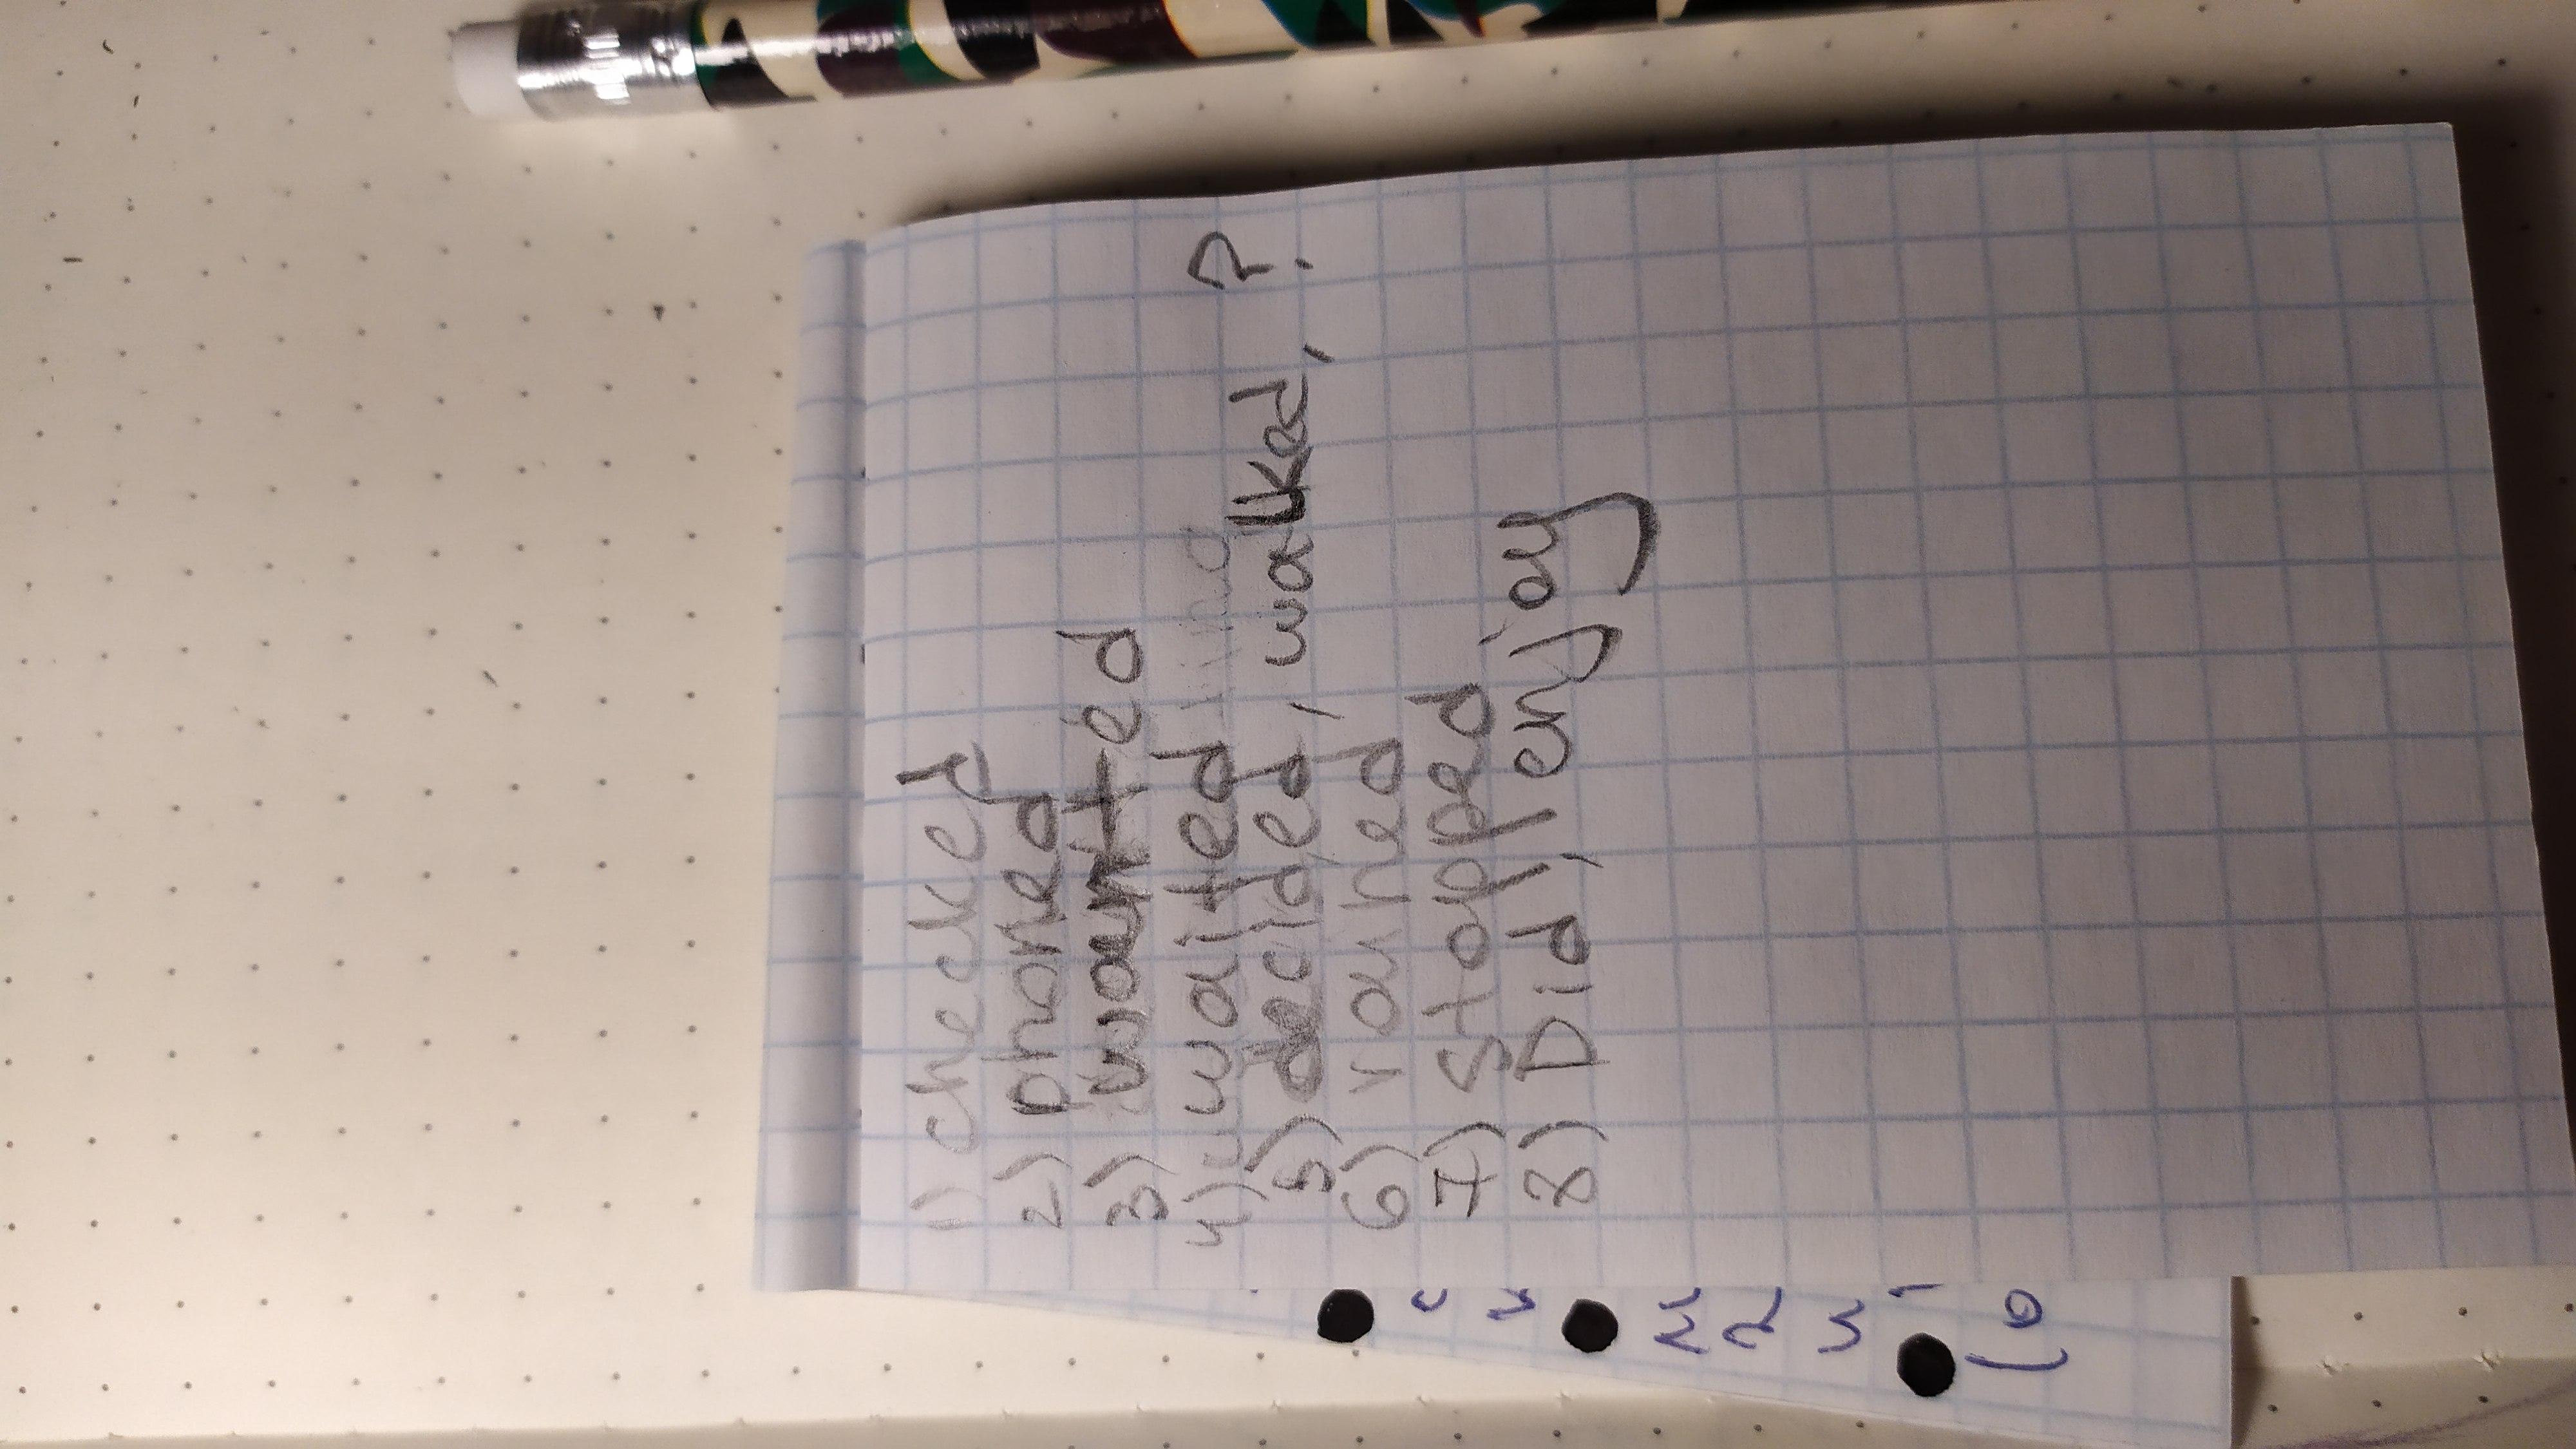 1) checked
2) phoned
3) wanted
4) waited
5) decided, walked, ?
6) rained
7) stopped
8) Did, enjoy